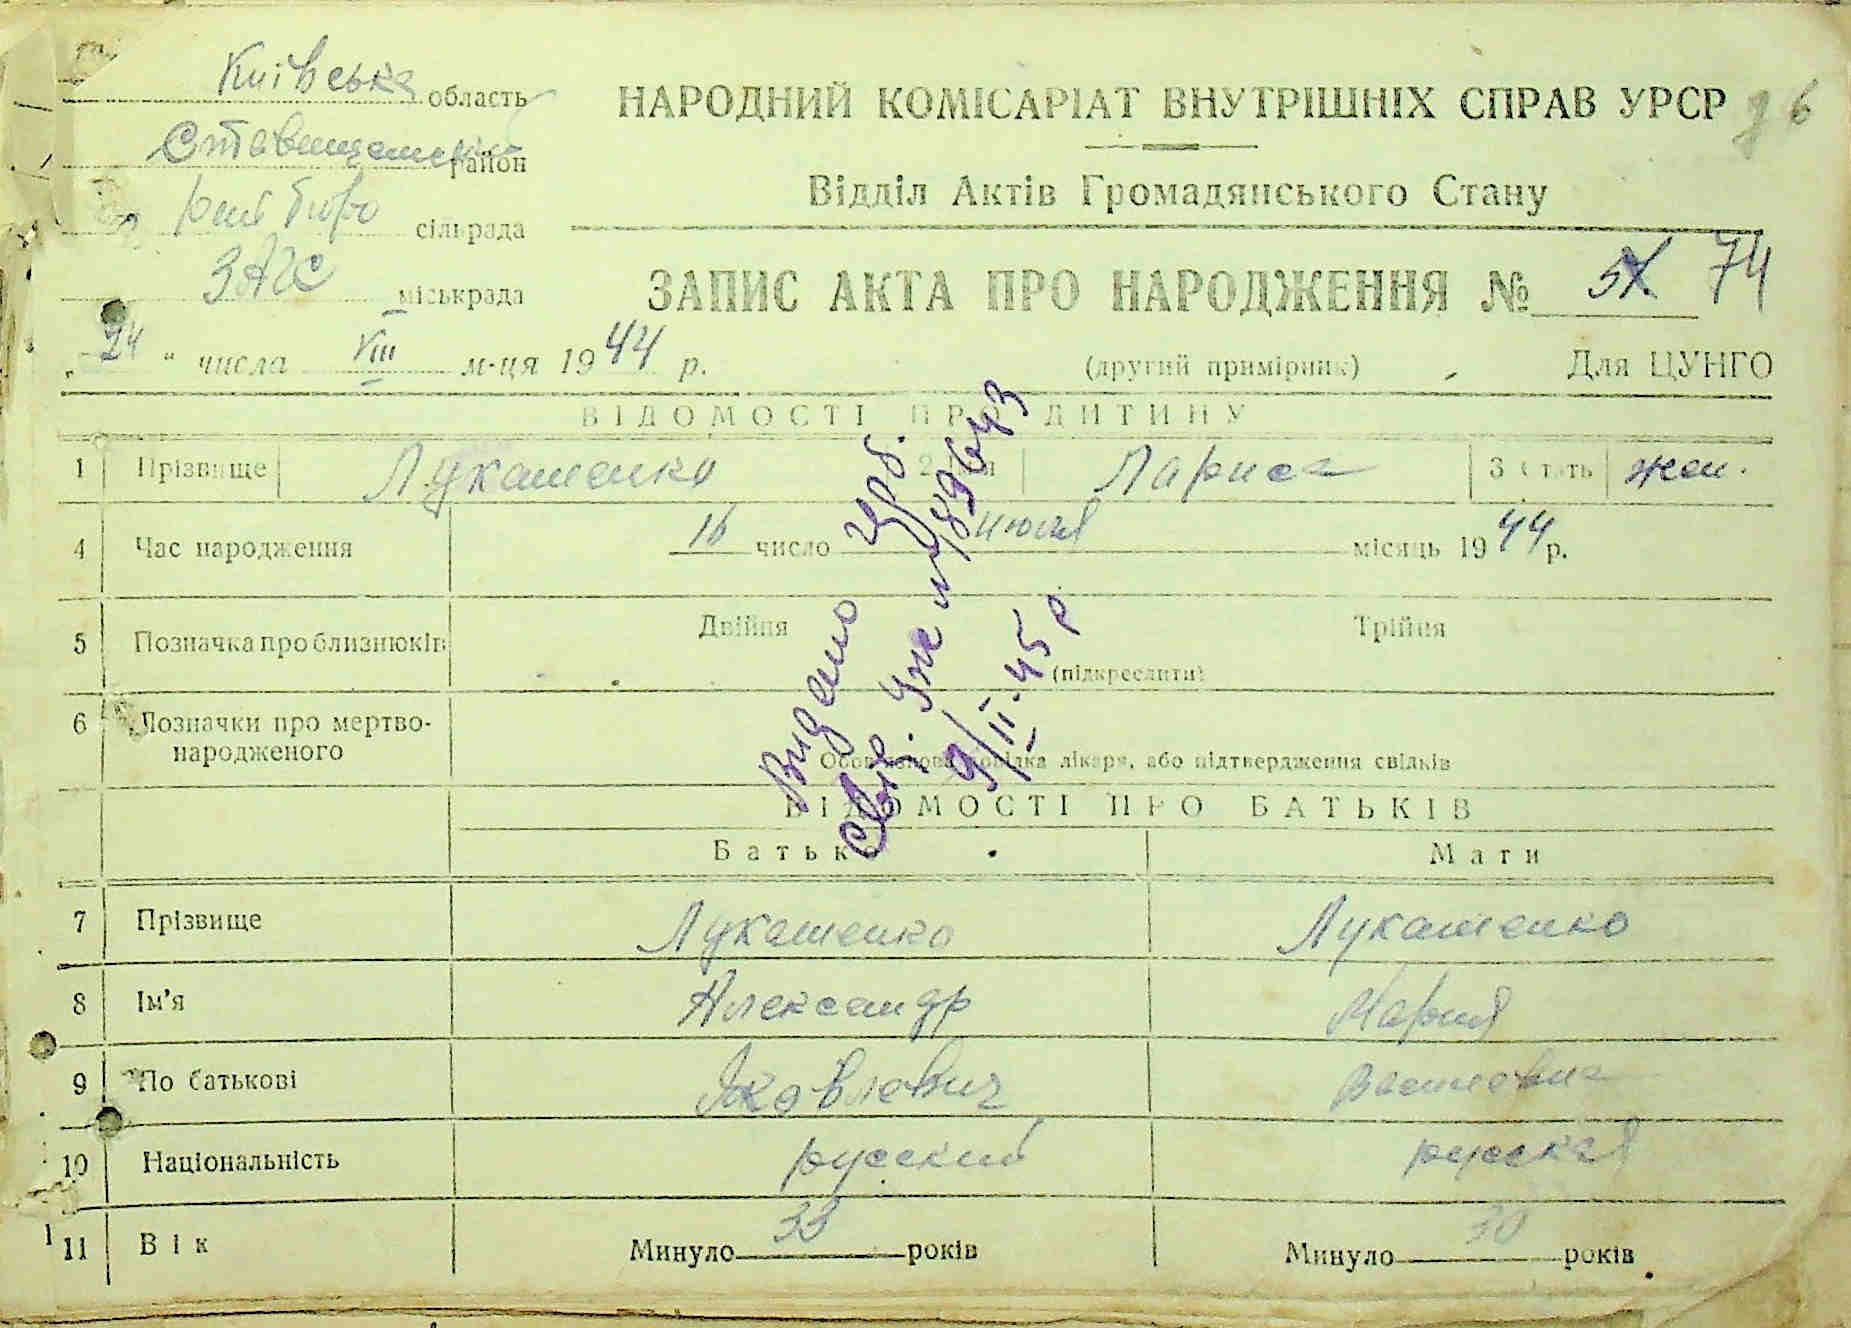 Київська область
Ставищенський район
рай бюро сільрада
ЗАГС міськрада
НАРОДНИЙ КОМІСАРІАТ ВНУТРІШНІХ СПРАВ УРСР
Відділ Актів Громадянського Стану
ЗАПИС АКТА ПРО НАРОДЖЕННЯ № 74
„24“ числа VIII м-ця 1944 р. (другий примірник) Для ЦУНГО
ВІДОМОСТІ ПРО ДИТИНУ
1 Прізвище Лукашенко 2 Ім'я Лариса 3 Стать жен.
4 Час народження 16 число июля місяць 1944 р.
5 Позначка про близнюків Двійня Трійня
(підкреслити)
6 Позначки про мертво-
народженого
Обов'язкова довідка лікаря, або підтвердження свідків
Видано
9/II-45 р
ВІДОМОСТІ ПРО БАТЬКІВ
Батько Мати
7 Прізвище Лукашенко Лукашенко
8 Ім'я Александр Мария
9 По батькові Яковлевич
10 Національність русский русская
11 Вік Минуло 33 років Минуло 30 років